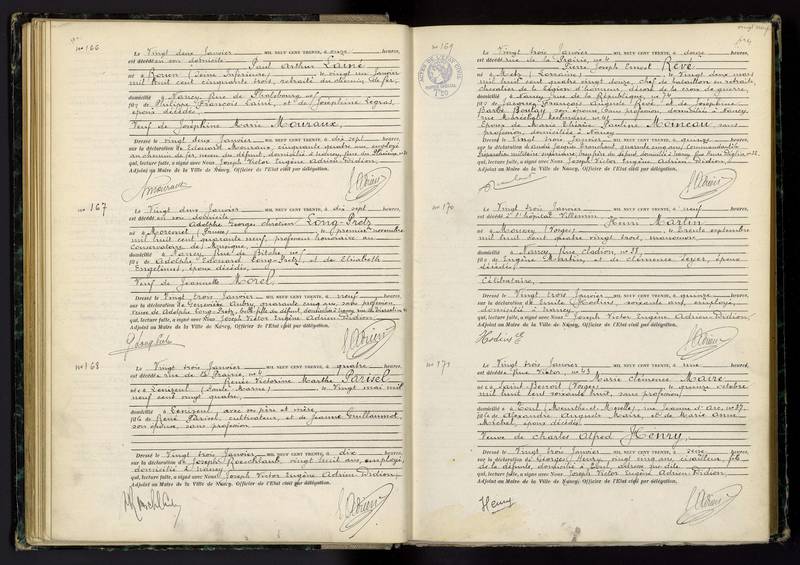 No 166
Le Vingt deux Janvier MIL NEUF CENT TRENTE, à onze heures,
est décédé en son domicile Paul Arthur Lainé
né à Rouen (Seine Inférieure) le vingt un Janvier
mil huit cent cinquante trois, retraité du chemin de fer,
domicilié à Nancy, Rue de Phalsbourg
fils de Philippe François Lainé, et de Joséphine Legras,
époux décédés,
Veuf de Joséphine Marie Mouraux,
Dressé le vingt deux Janvier MIL NEUF CENT TRENTE, à dix sept heures,
sur la déclaration de Edouard Mouraux, cinquante quatre ans, employé
au chemin de fer, neveu du défunt, domicilié à Nancy,
qui, lecture faite, a signé avec Nous Joseph Victor Eugène Adrien-Didion,
Adjoint au Maire de la Ville de Nancy, Officier de l'Etat civil par délégation.
No 167
Le Vingt deux Janvier MIL NEUF CENT TRENTE, à dix sept heures,
est décédé en son domicile
Adolphe Georges Chrétien Long-Pretz
né à le premier novembre
mil huit cent quarante neuf, professeur honoraire au
Conservatoire de Musique,
domicilié à Nancy, Rue de Bitche,
fils de Adolphe Edouard Long-Pretz, et de Elisabeth
Engelinus, époux décédés,
Veuf de Jeannette Morel,
Dressé le Vingt trois Janvier MIL NEUF CENT TRENTE, à neuf heures,
sur la déclaration de Geneviève Aubry, quarante cinq ans, sans profession,
Veuve de Adolphe Long-Pretz, belle-fille du défunt, domiciliée à Nancy
qui, lecture faite, a signé avec Nous Joseph Victor Eugène Adrien-Didion,
Adjoint au Maire de la Ville de Nancy, Officier de l'Etat civil par délégation.
No 168
Le Vingt trois Janvier MIL NEUF CENT TRENTE, à quatre heures,
est décédée rue de la Prairie, no 4
Renée Victorine Marthe Parisel
née à Lenizeul (Haute Marne) le Vingt mai mil
neuf cent vingt quatre,
domiciliée à Lenizeul, avec ses père et mère,
fille de René Parisel, cultivateur, et de Jeanne Guilhaumot,
son épouse, sans profession
Dressé le Vingt trois Janvier MIL NEUF CENT TRENTE, à dix heures,
sur la déclaration de Joseph vingt huit ans, employé,
domicilié à Nancy
qui, lecture faite, a signé avec Nous Joseph Victor Eugène Adrien-Didion,
Adjoint au Maire de la Ville de Nancy, Officier de l'Etat civil par délégation.
No 169
Le Vingt trois Janvier MIL NEUF CENT TRENTE, à douze heures,
est décédé rue de la Prairie, no 4
Pierre Joseph Ernest Rêvé
né à Metz (Lorraine) le Vingt deux mars
mil huit cent quatre vingt douze, chef de bataillon en retraite,
chevalier de la légion d'honneur, décoré de la croix de guerre,
domicilié à Nancy, rue de la République, no 74
fils de Jacques François Auguste Rêvé, et de Joséphine
Barbe Boulay, son épouse, sans profession, domiciliée à Nancy,
Epoux de Marie Thérèse Pauline Moineau, sans
profession, domiciliée à Nancy
Dressé le Vingt trois Janvier MIL NEUF CENT TRENTE, à quinze heures,
sur la déclaration de quarante cinq ans,
qui, lecture faite, a signé avec Nous Joseph Victor Eugène Adrien-Didion,
Adjoint au Maire de la Ville de Nancy, Officier de l'Etat civil par délégation.
No 170
Le Vingt trois Janvier MIL NEUF CENT TRENTE, à neuf heures,
est décédé à l'hôpital Villemin Henri Martin
né à Moussey (Vosges) le trente septembre
mil huit cent quatre vingt trois, manoeuvre
domicilié à Nancy, Rue Clodion,
fils de Eugène Martin, et de Clémence époux
décédés
Célibataire,
Dressé le Vingt trois Janvier MIL NEUF CENT TRENTE, à quinze heures,
sur la déclaration de Emile Hodius, soixante ans, employé,
domicilié à Nancy
qui, lecture faite, a signé avec Nous Joseph Victor Eugène Adrien-Didion,
Adjoint au Maire de la Ville de Nancy, Officier de l'Etat civil par délégation.
No 171
Le Vingt trois Janvier MIL NEUF CENT TRENTE, à une heures,
est décédée Rue Victor, no 43
Marie Clémence Maire
née à Saint-Benoit (Vosges) le quinze octobre
mil huit cent soixante huit, sans profession,
domiciliée à Toul (Meurthe-et-Moselle), rue Jeanne d'Arc, no 27,
fille de Alexandre Auguste Maire, et de Marie Anne
Michel, époux décédés
Veuve de Charles Alfred Henry,
Dressé le Vingt trois Janvier MIL NEUF CENT TRENTE, à seize heures,
sur la déclaration de Georges Henry, vingt cinq ans, fils
de la défunte, domicilié à
qui, lecture faite, a signé avec Nous Joseph Victor Eugène Adrien-Didion,
Adjoint au Maire de la Ville de Nancy, Officier de l'Etat civil par délégation.
Henry